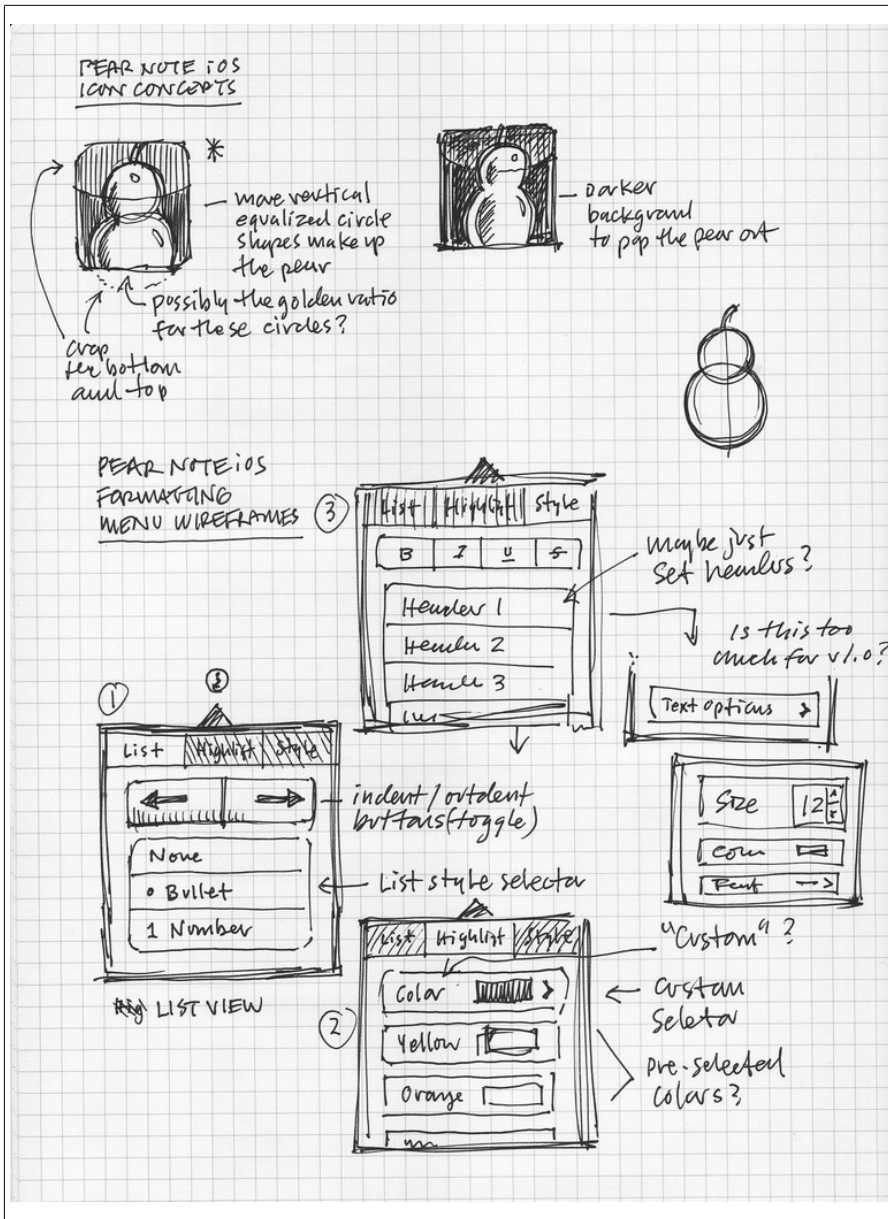 PEAR NOTE iOS
ICON CONCEPTS
*
more vertical
equalized circle
shapes make up
the pear
possibly the golden ratio
for these circles?
crop
bottom
and top
Darker
background
to pop the pear out
PEAR NOTE iOS
FORMATTING
MENU WIREFRAMES
3
List Highlight Style
B I U S
Header 1
Header 2
Header 3
maybe just
set headers?
Is this too
much for v1.0?
Text options >
Size 12
Color
Font -->
1
List Highlist Style
indent/outdent
buttons (toggle)
None
• Bullet
1 Number
List style selector
LIST VIEW
2
List Highlist Style
Color >
Yellow
Orange
"Custom"?
Custom
Seletor
pre-selected
colors?